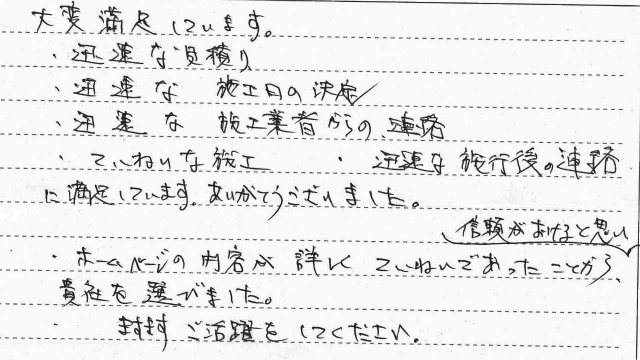 大変満足しています。
・迅速な見積り
・迅速な 施工日の決定
・迅速な 施工業者からの連絡
・ていねいな施工 ・迅速な施行後の連絡
に満足しています。ありがとうございました。
信頼がおけると思い
・ホームページの内容が詳しくていねいであったことから、
貴社を選びました。
・ますますご活躍をしてください。